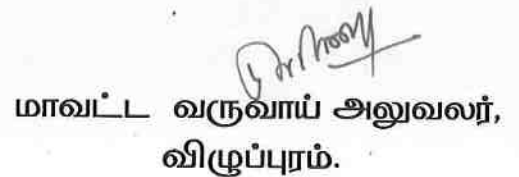 மாவட்ட வருவாய் அலுவலர்,
விழுப்புரம்.